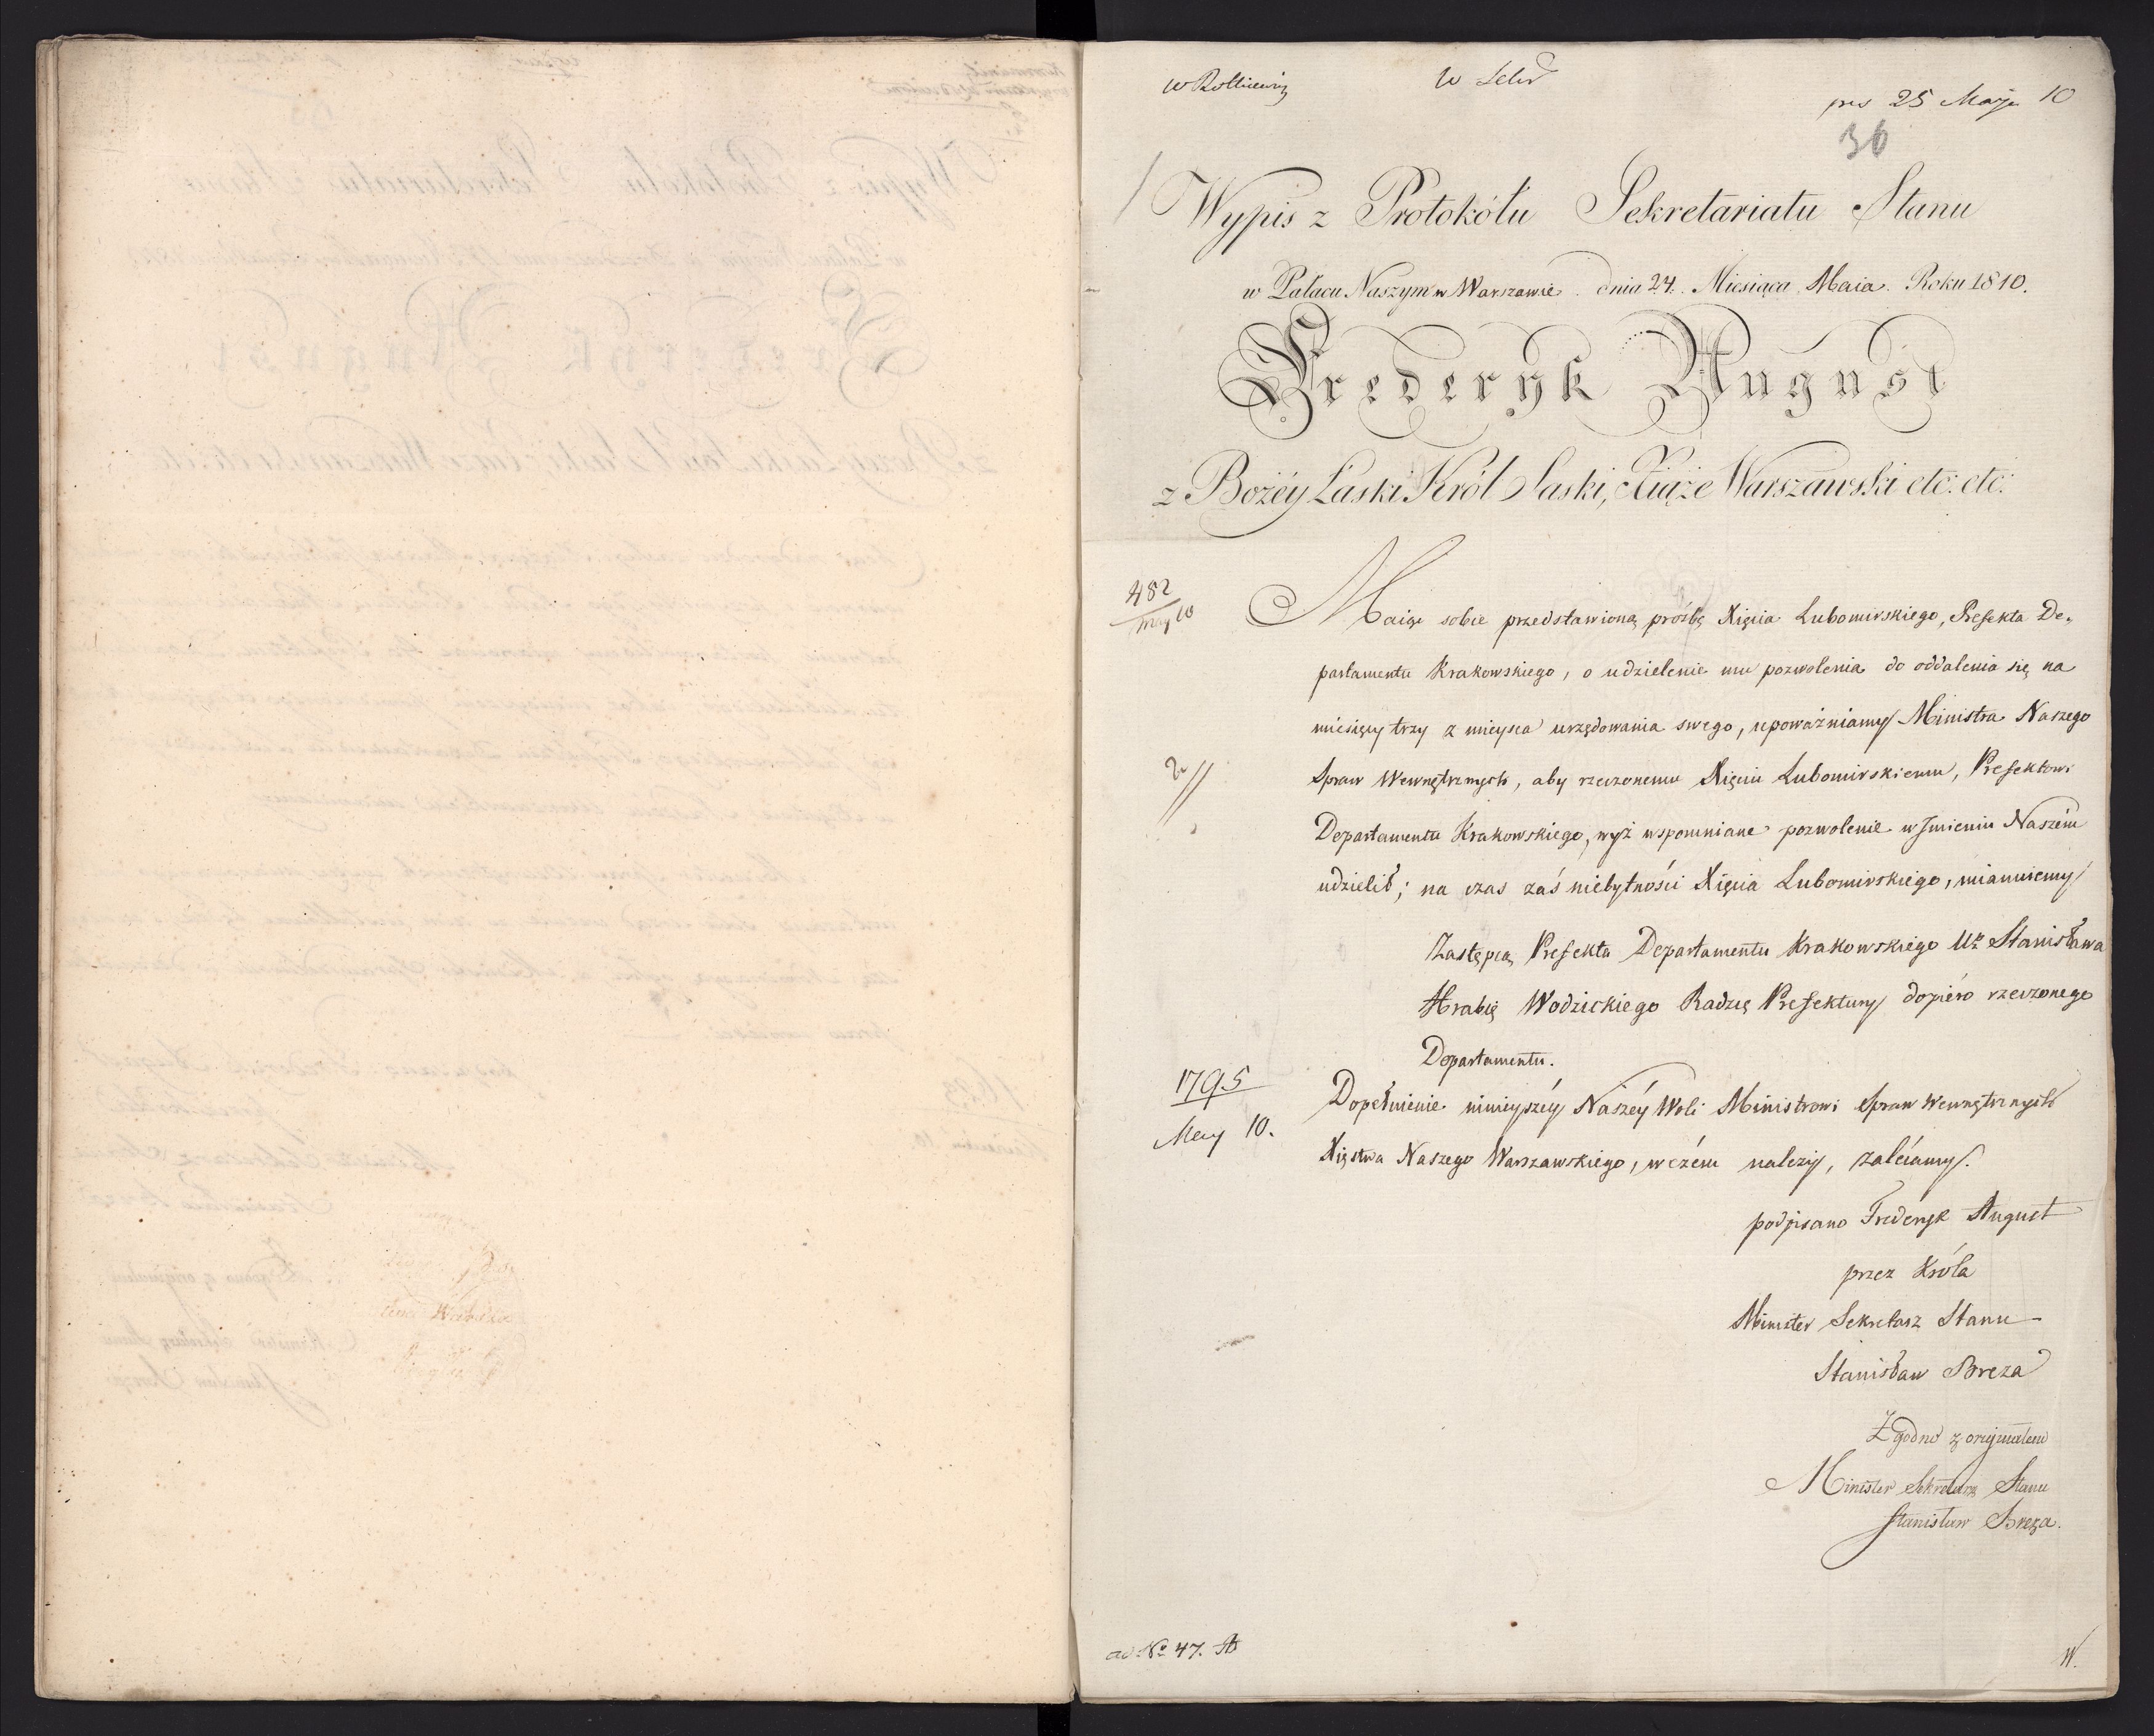 pres 25 Maja 10
36
Wypis z Protokółu Sekretariatu Stanu
w Pałacu Naszym w Warszawie dnia 24. Miesiąca Maia Roku 1810.
Frederyk August
z Bożéy Łaski Król Saski, Xiąże Warszawski etc: etc:
482
May 10
Maiąc sobie przedstawioną prośbę Xięcia Lubomirskiego, Prefekta De„
partamentu Krakowskiego, o udzielenie mu pozwolenia do oddalenia się na
miesięcy trzy z mieysca urzędowania swego, upoważniamy Ministra Naszego
Spraw Wewnętrznych, aby rzeczonemu Xięciu Lubomirskiemu, Prefektowi
Departamentu Krakowskiego, wyż wspomniane pozwolenie w Jmieniu Naszém
udzielił; na czas zaś niebytności Xięcia Lubomirskiego, mianuiemy
Zastępcą Prefekta Departamentu Krakowskiego Ur. Stanisława
Hrabię Wodzickiego Radzcę Prefektury dopiéro rzeczonego
Departamentu.
1795
May 10.
Dopełnienie ninieyszéy Naszéy Woli Ministrowi Spraw Wewnętrznych
Xięstwa Naszego Warszawskiego, w czém należy, zalécamy.
podpisano Frederyk August
przez Króla
Minister Sekretarz Stanu
Stanisław Breza
Zgodno z oryginałem
Minister Sekretarz Stanu
Stanisław Breza.
ad No 47. A
W.